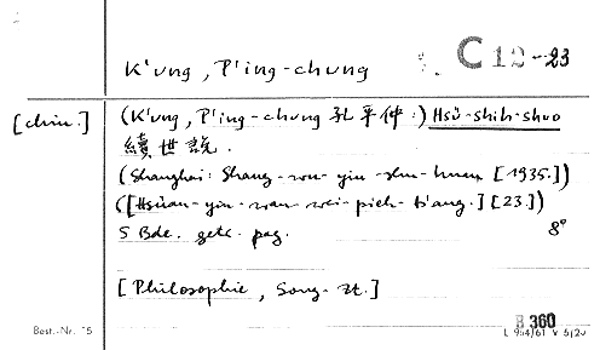 K'ung, P'ing-chung
C 12-23
[chin.]
(K'ung, P'ing-chung 孔平仲:) Hsü-shih-shuo
續世說.
(Shanghai: Shang-wu yin-shu-kuan [1935.])
([Hsüan-yin-wan-wei-pieh-ts'ang.] [23.])
5 Bde. getr. pag. 8°
[Philosophie, Song-Zt.]
B 360
Best.-Nr. 15
L 954/61 V 5/2